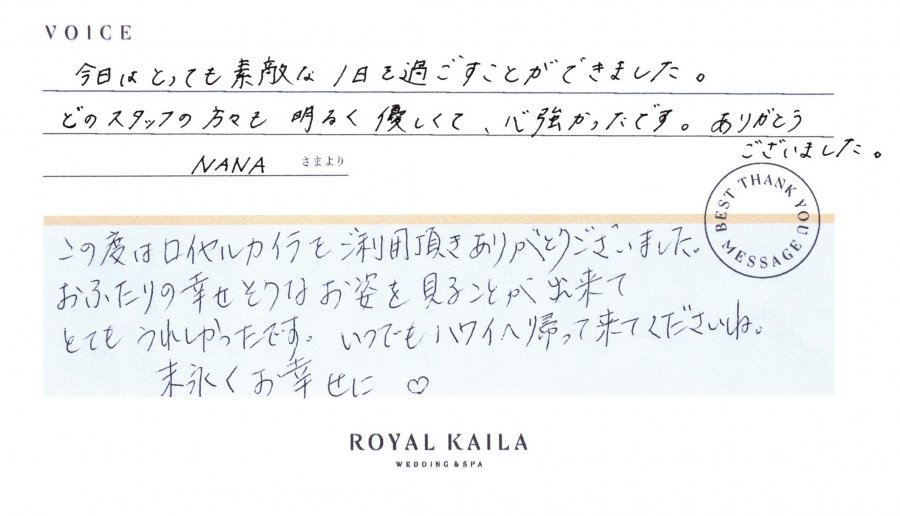 VOICE
今日はとっても素敵な1日を過ごすことができました。
どのスタッフの方々も 明るく 優しくて、心強かったです。ありがとう
ございました。
NANA さまより
BEST THANK YOU MESSAGE
この度はロイヤルカイラをご利用頂きありがとうございました。
おふたりの幸せそうなお姿を見ることが出来て
とてもうれしかったです。いつでもハワイへ帰って来てくださいね。
末永くお幸せに ♡
ROYAL KAILA
WEDDING & SPA